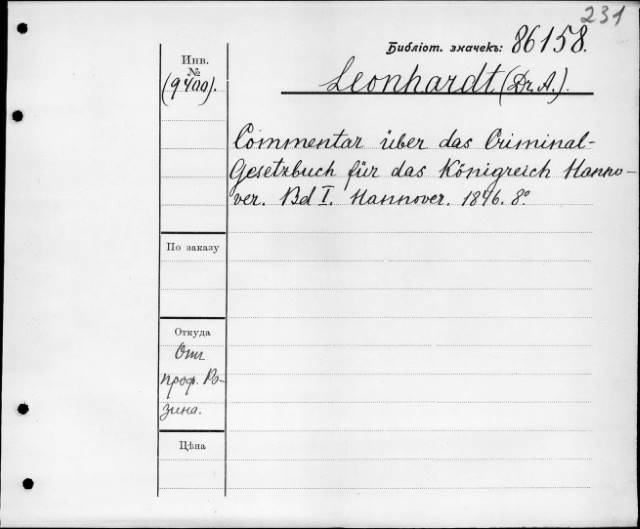 231
Библіот. значекъ: 86158.
Инв.
№
(9400).
Leonhardt (Dr. A.).
Commentar über das Criminal-
Gesetzbuch für das Königreich Hanno-
ver. Bd I. Hannover. 1846. 8º
По заказу
Откуда
Отъ
проф. Ро-
зина.
Цѣна